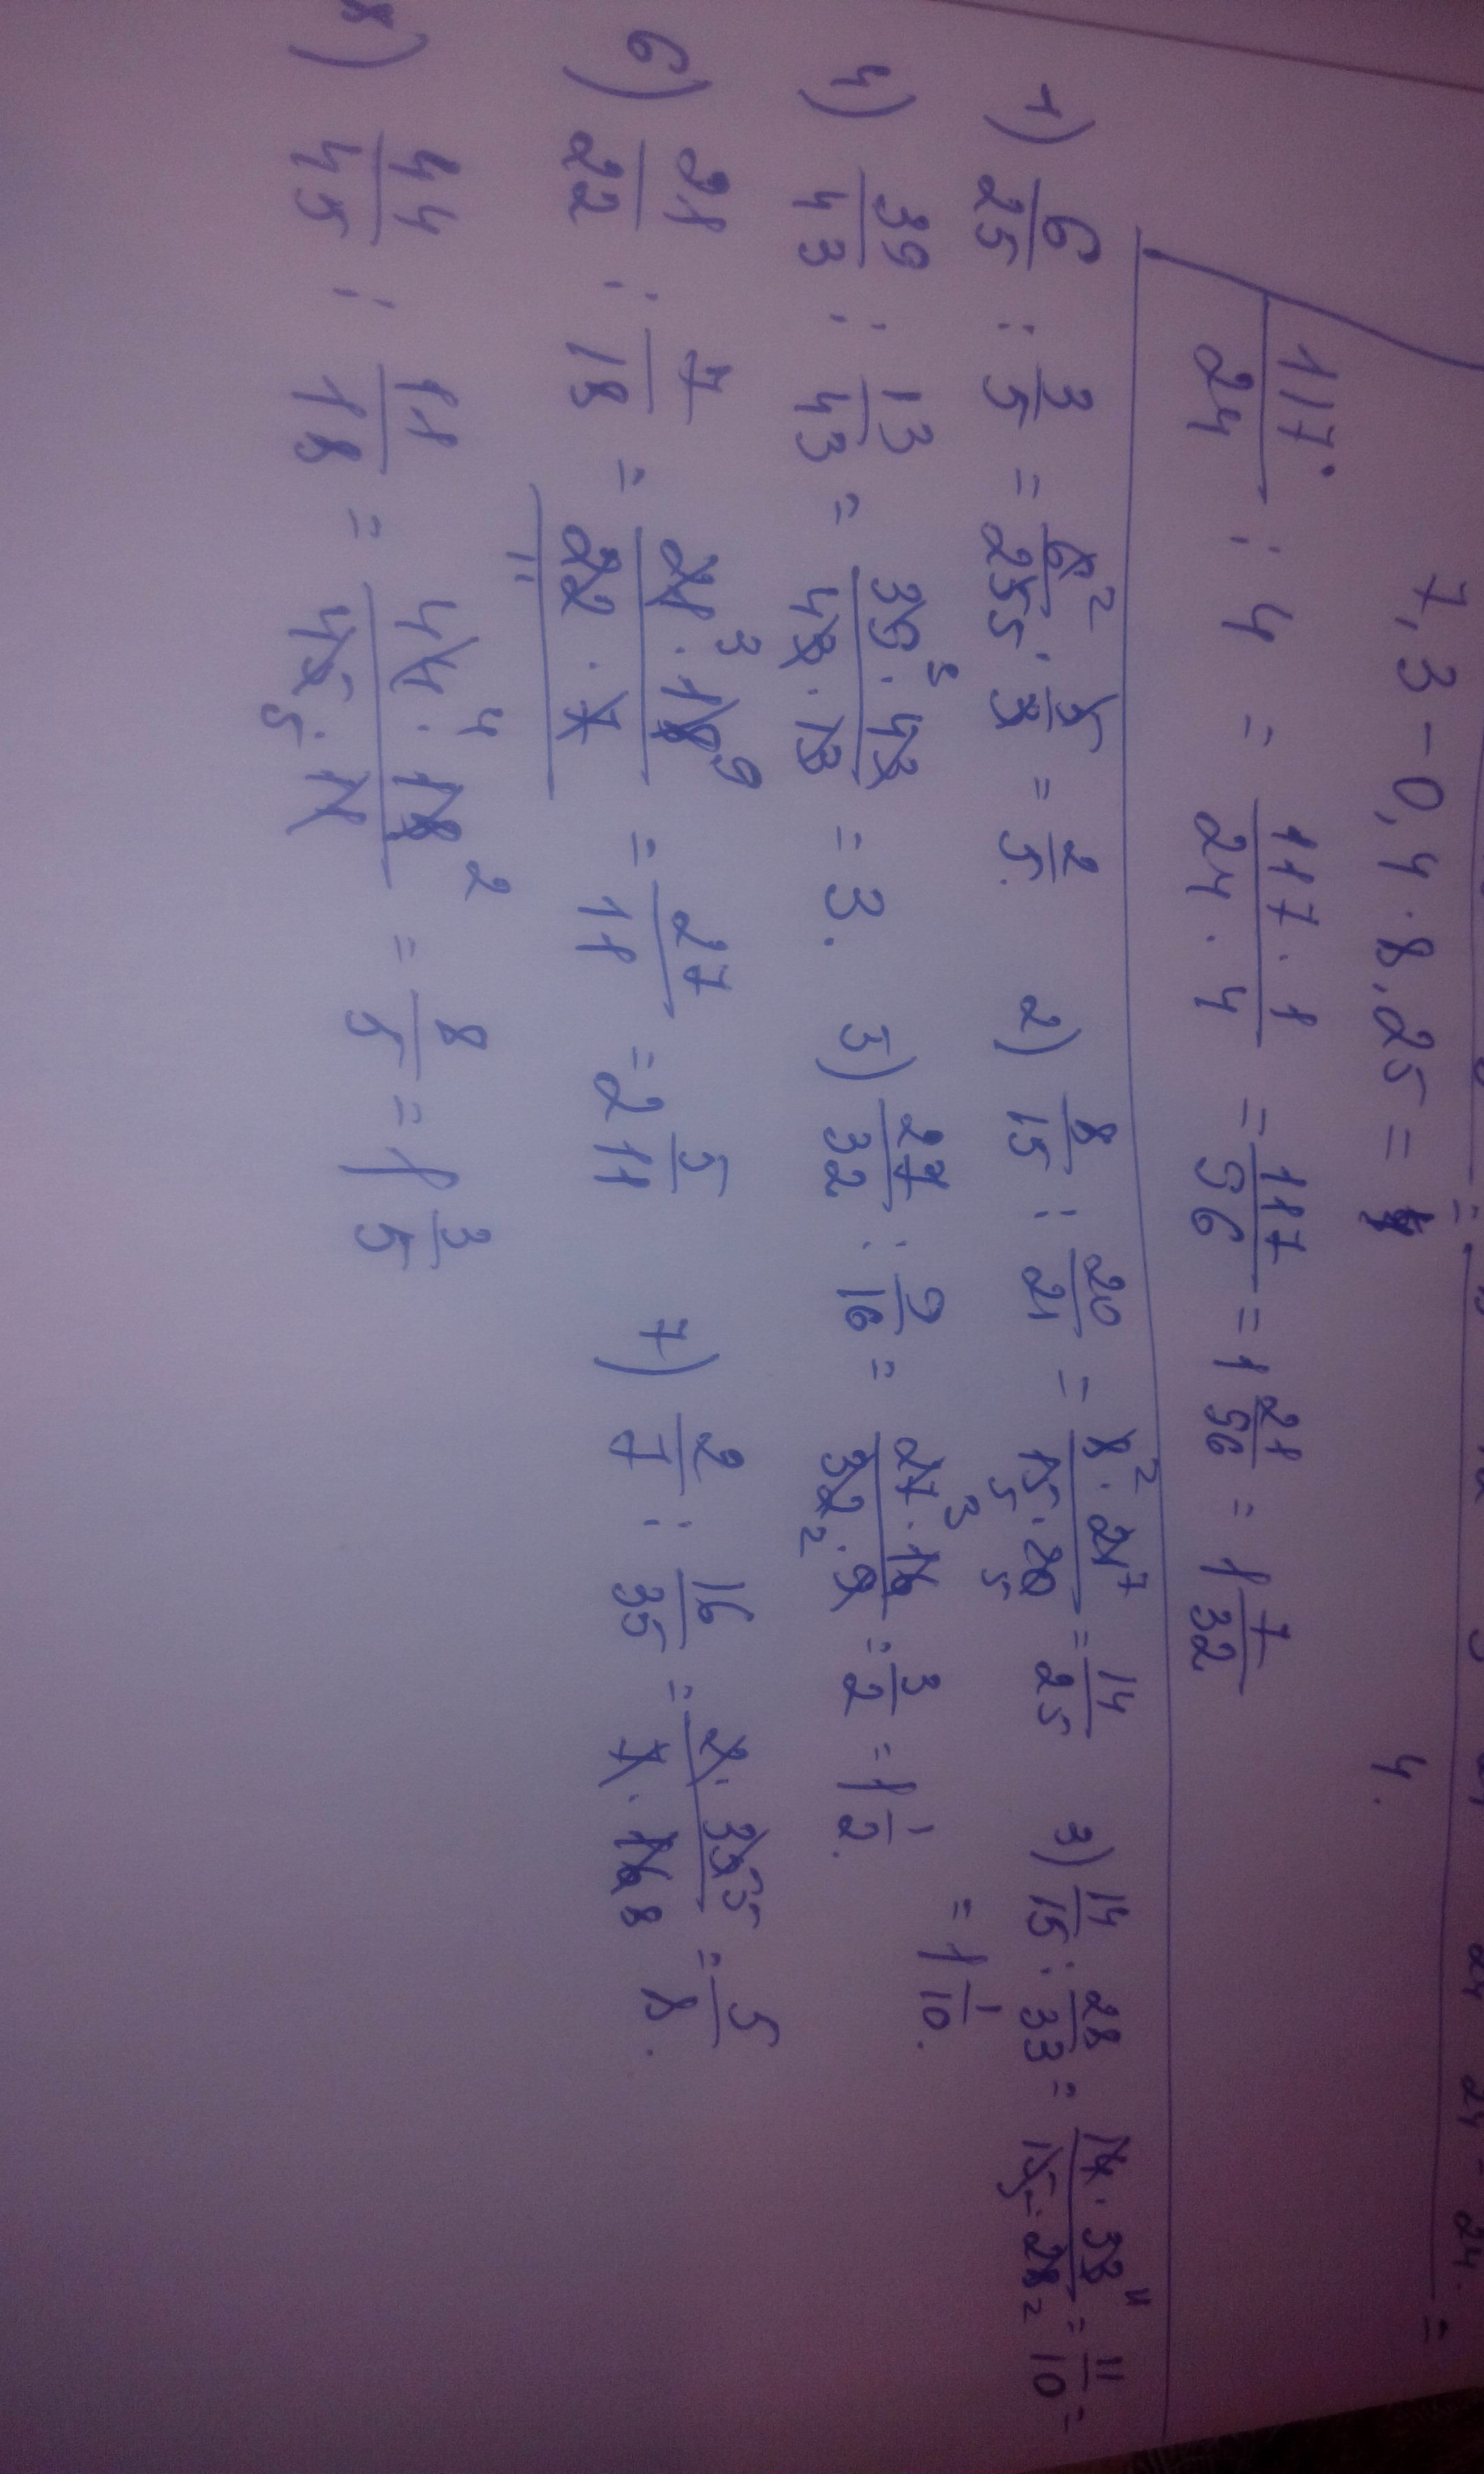 7,3 - 0,4 · 8,25 = 4.
117/24 : 4 = 117 · 1/24 · 4 = 117/96 = 1 21/96 = 1 7/32
1) 6/25 : 3/5 = 6² · 5/25 5 · 3 = 2/5. 2) 8/15 : 20/21 = 8² · 21⁷/15 5 · 20 5 = 14/25 3) 14/15 : 28/33 = 14 · 33 11/15 5 · 28 2 = 11/10 =
= 1 1/10.
4) 39/43 : 13/43 = 39³ · 43/43 · 13 = 3. 5) 27/32 : 9/16 = 27³ · 16/32 2 · 9 = 3/2 = 1 1/2.
6) 21/22 : 7/18 = 21³ · 18⁹/22 · 7 = 27/11 = 2 5/11 7) 2/7 : 16/35 = 2 · 35 5/7 · 16 8 = 5/8.
11
8) 44/45 : 11/18 = 44⁴ · 18²/45 5 · 11 = 8/5 = 1 3/5